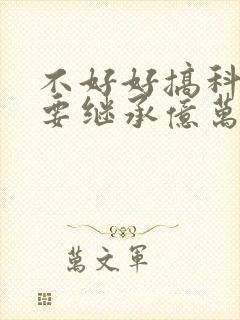 不好好搞科
要继承億萬
萬文軍